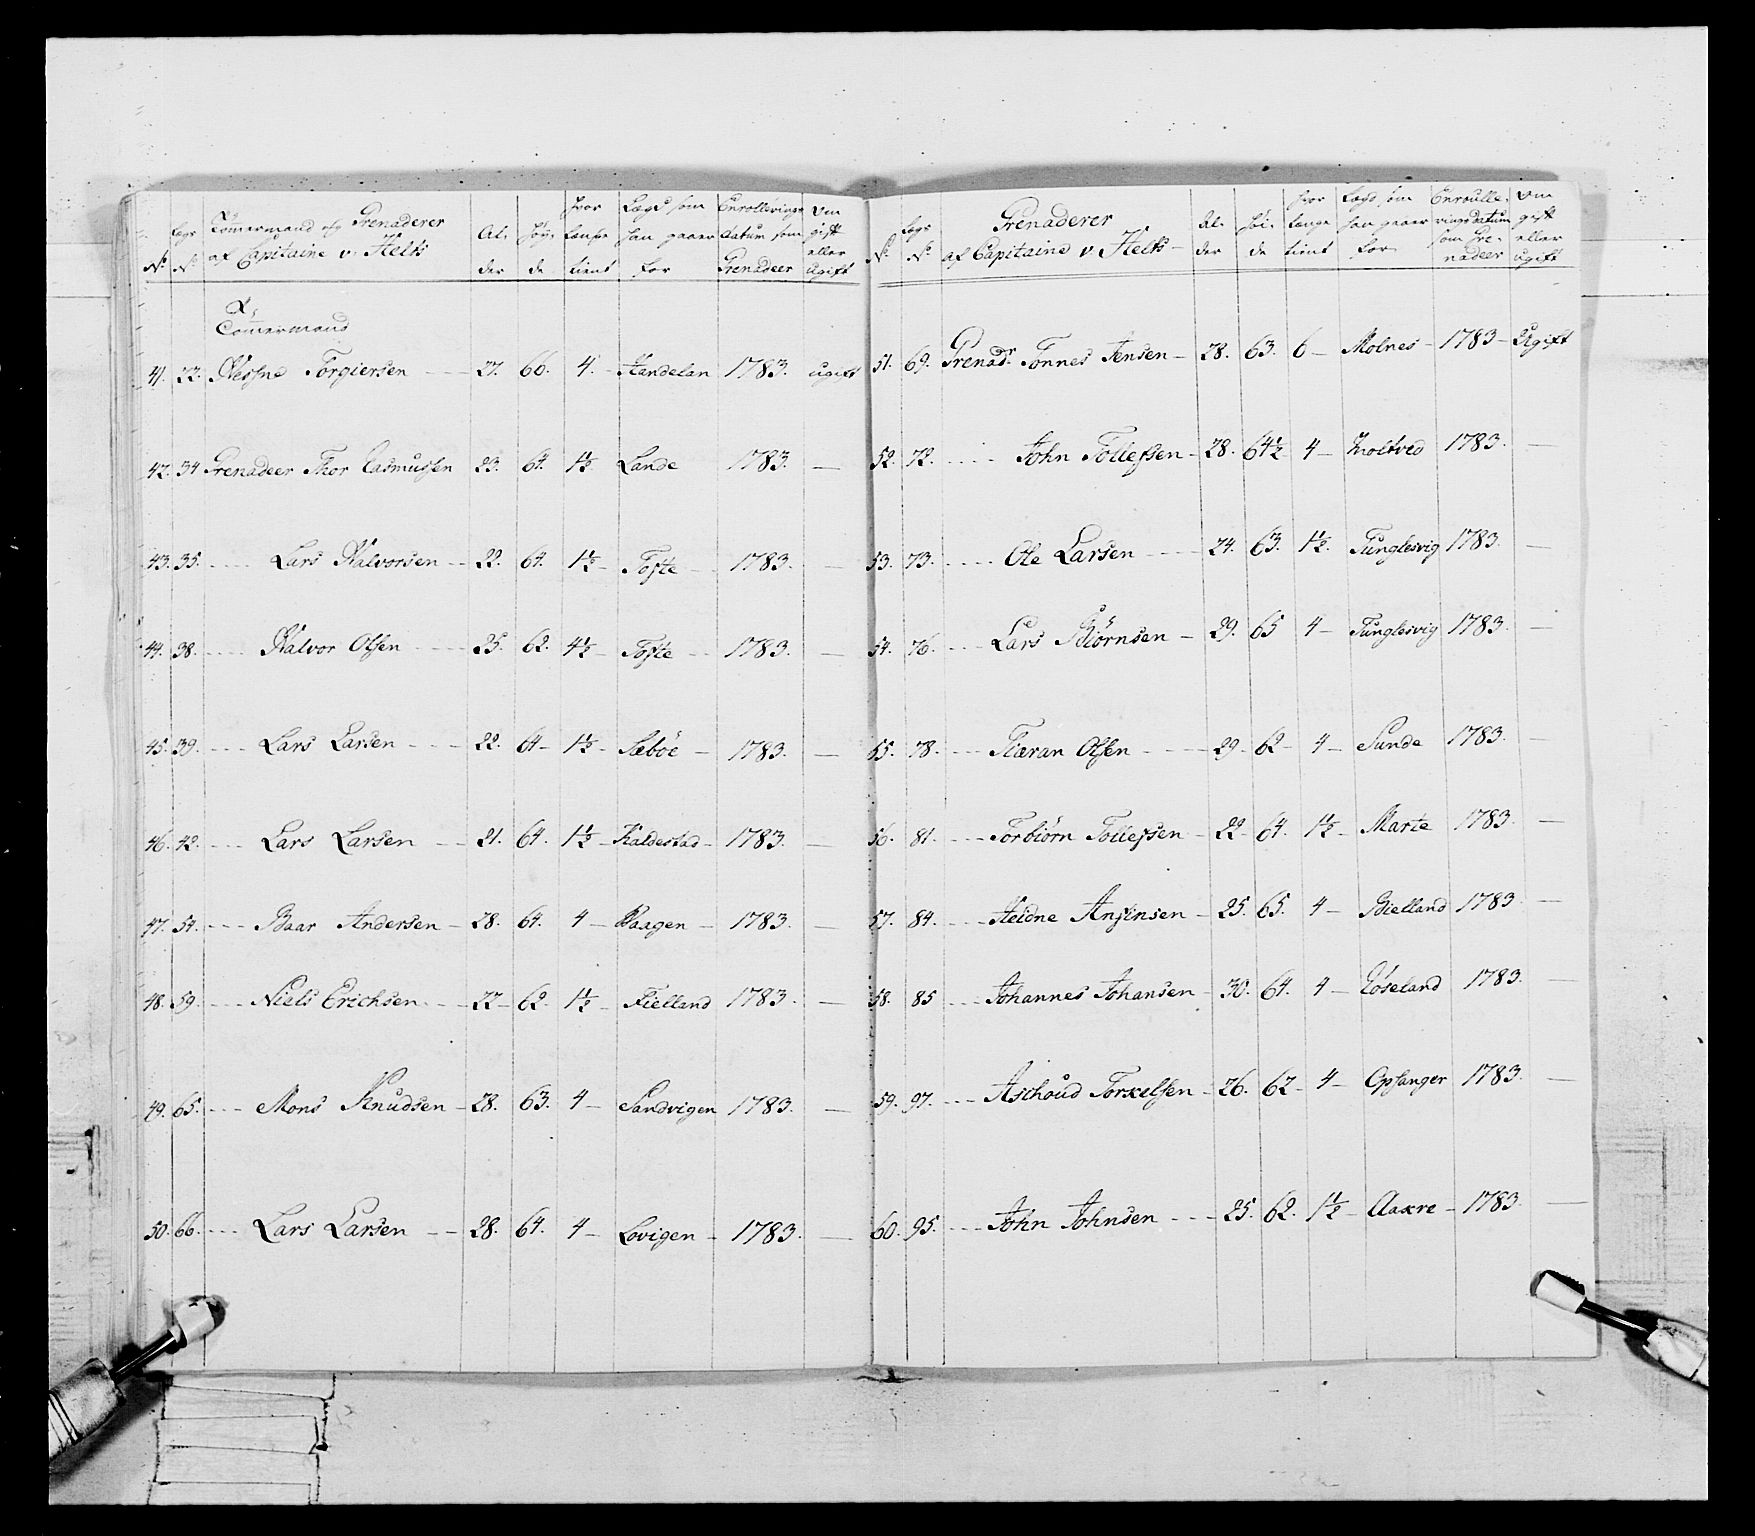 N: Lægs N: Tømermand og Grenaderer af Capitaine v: Helts Al- der Høy- de Hvor længe tient Lægd som han gaaer for Enrollerings datum som Grenadeer Om gift eller ugift
Tømermand
41. 22. Torgiersen 27. 66. 4. Handeland 1783. ugift
42. 34 Grenadeer Thor Rasmussen 23. 64. 1½ Lande 1783. —
43. 35. Lars Halvorsen 22. 64. 1½ Tofte 1783. —
44. 38. Halvor Olsen 25. 62. 4½ Tofte 1783. —
45. 39. Lars Larsen 22. 64 1½ Sæbøe 1783. —
46. 42. Lars Larsen 21. 64. 1½ Kaldestad 1783. —
47. 54. Baar Andersen 28. 64. 4 Waagen 1783. —
48. 59. Niels Erichsen 22 62. 1½ Fielland 1783. —
49. 65. Mons Knudsen 28. 63. 4 Sandvigen 1783. —
50. 66. Lars Larsen 28. 64. 4 Lovigen 1783. —
N: Lægs N: Grenaderer af Capitaine v Helts Al- der Høi- de Hvor længe tient Lægd som han gaaer for Enroulle- ringsdatum som Gre- nadeer Om gift eller ugift
51. 69. Grenadr Tønnes Jensen 28. 63. 6 Molnes 1783 Ugift
52. 72. John Tollefsen 28. 64½ 4 1783. —
53. 73. Ole Larsen 24. 63. 1½. Tunglesvig 1783. —
54. 76. Lars Biørnsen 29. 65 4 Tunglesvig 1783. —
55. 78. Olsen 29 62 4 Sunde 1783. —
56. 81. Torbiørn Tollefsen 22 64. 1½ Marte 1783. —
57. 84. 25. 65. 4 Bielland 1783 —
58. 85 Johannes Johansen 30. 64. 4 Røseland 1783.
59. 97. Torkelsen 26. 62 4 Opsanger 1783. —
60. 95. John Johnsen 25. 62. 1½ Aakre 1783. —